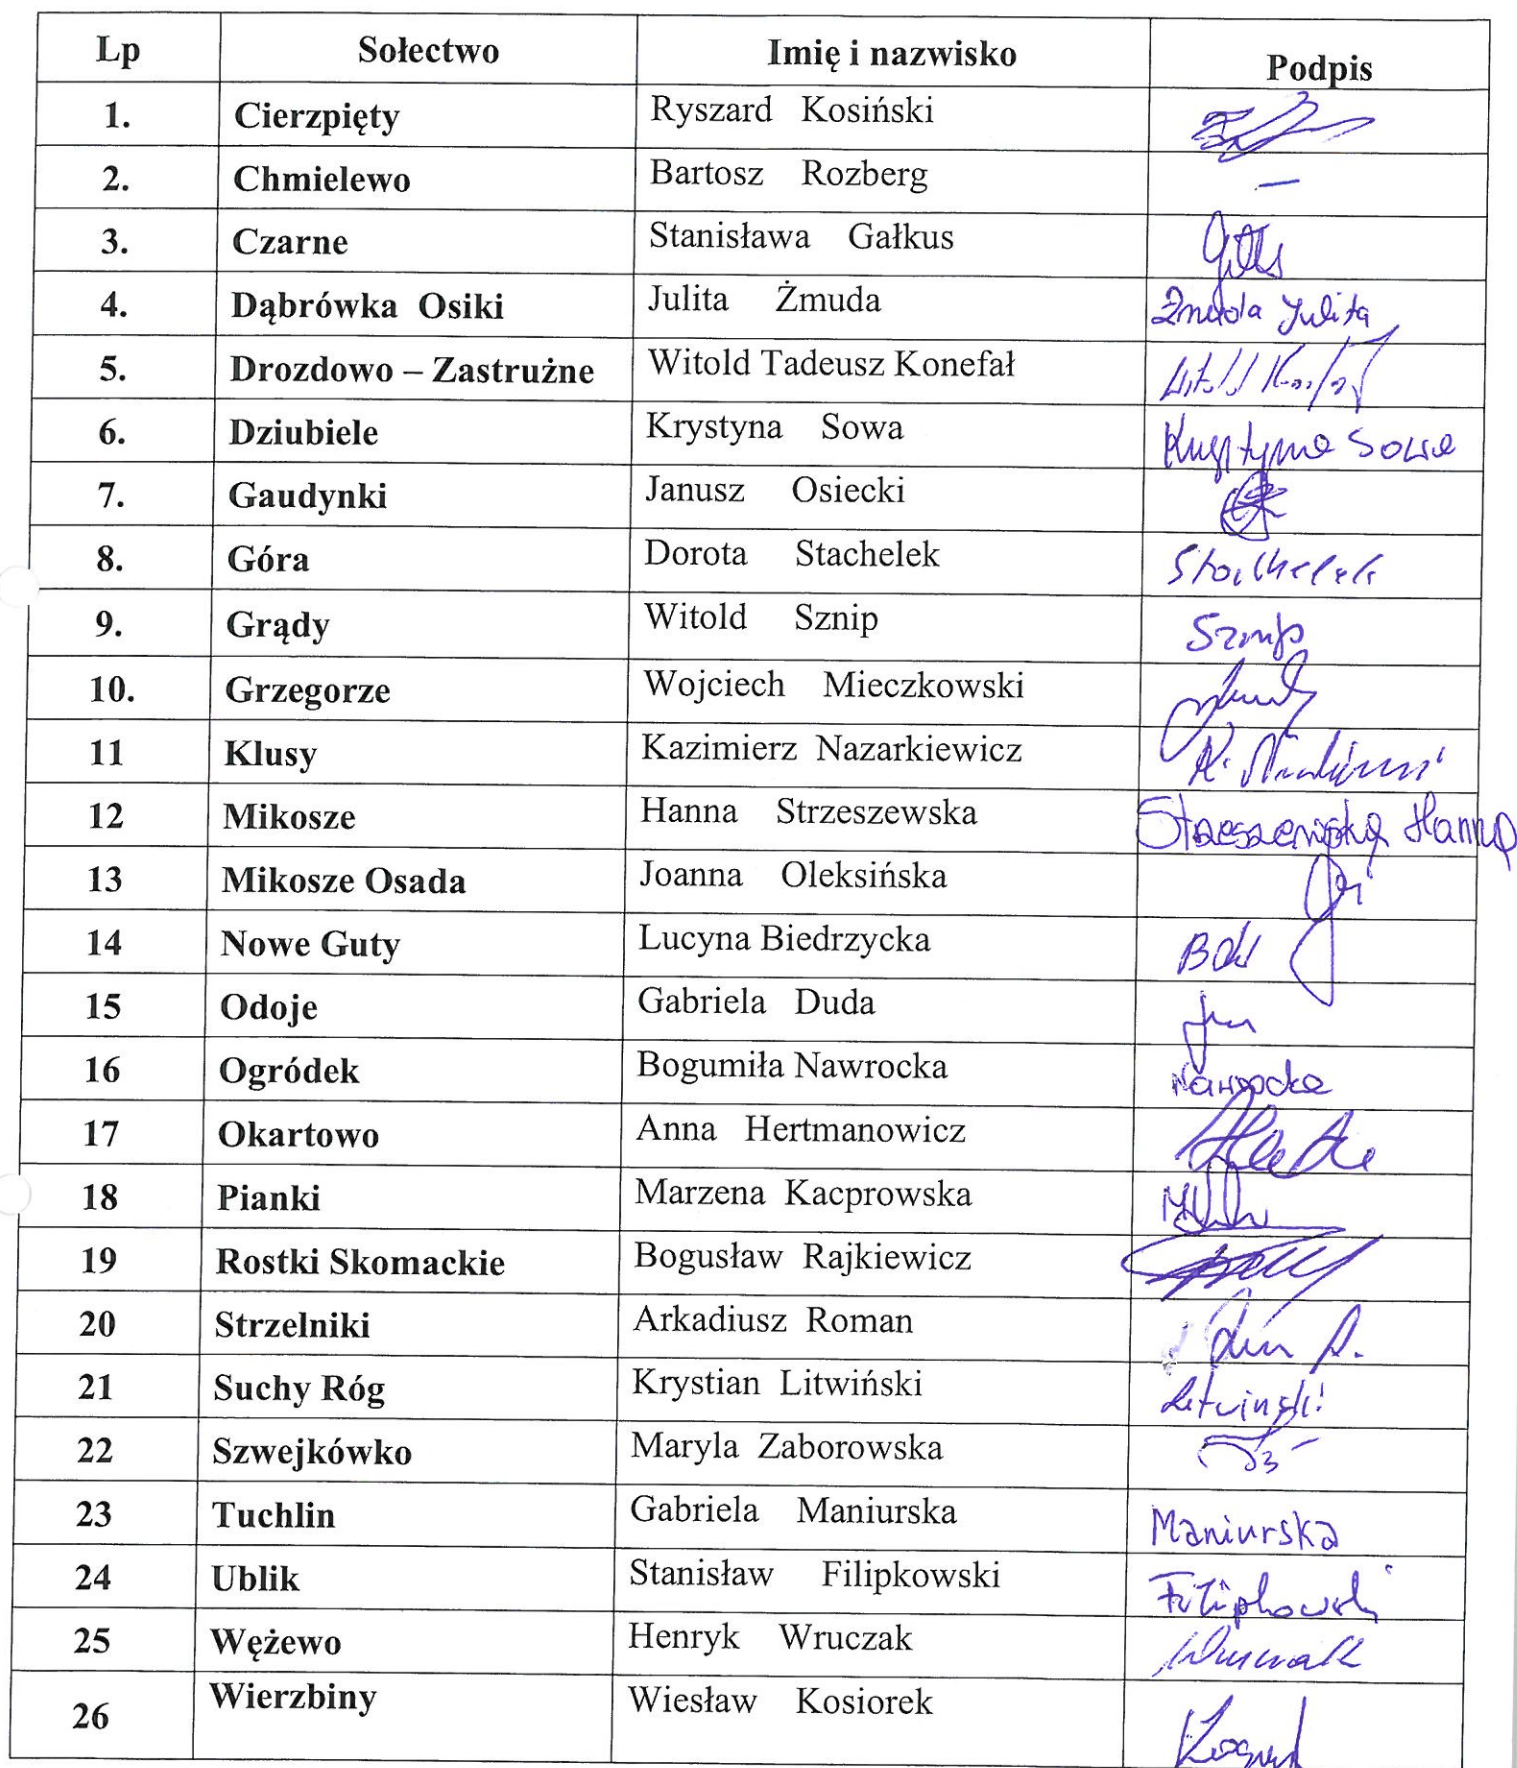 Lp Sołectwo Imię i nazwisko Podpis
1. Cierzpięty Ryszard Kosiński
2. Chmielewo Bartosz Rozberg –
3. Czarne Stanisława Gałkus
4. Dąbrówka Osiki Julita Żmuda Żmuda Julita
5. Drozdowo – Zastrużne Witold Tadeusz Konefał Witold
6. Dziubiele Krystyna Sowa Krystyna Sowa
7. Gaudynki Janusz Osiecki
8. Góra Dorota Stachelek Stachelek
9. Grądy Witold Sznip Sznip
10. Grzegorze Wojciech Mieczkowski
11 Klusy Kazimierz Nazarkiewicz K.
12 Mikosze Hanna Strzeszewska Strzeszewska Hanna
13 Mikosze Osada Joanna Oleksińska
14 Nowe Guty Lucyna Biedrzycka
15 Odoje Gabriela Duda
16 Ogródek Bogumiła Nawrocka Nawrocka
17 Okartowo Anna Hertmanowicz
18 Pianki Marzena Kacprowska
19 Rostki Skomackie Bogusław Rajkiewicz
20 Strzelniki Arkadiusz Roman
21 Suchy Róg Krystian Litwiński Litwiński
22 Szwejkówko Maryla Zaborowska
23 Tuchlin Gabriela Maniurska Maniurska
24 Ublik Stanisław Filipkowski Filipkowski
25 Wężewo Henryk Wruczak Wruczak
26 Wierzbiny Wiesław Kosiorek